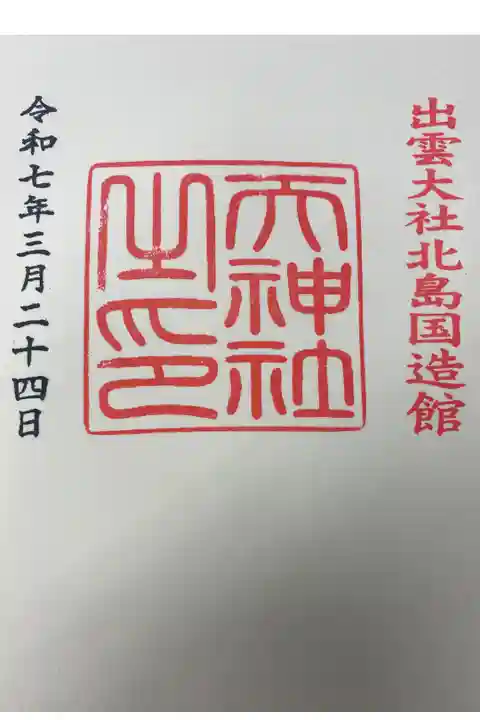 出雲大社北島国造館
天神社
之印
令和七年三月二十四日